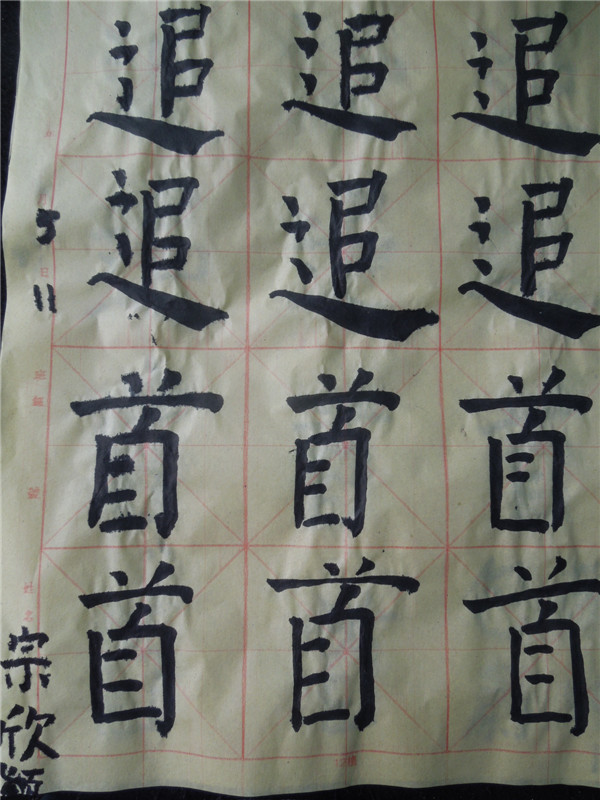 追追追
追追追
首首首
首首首
5
11
宗欣颖